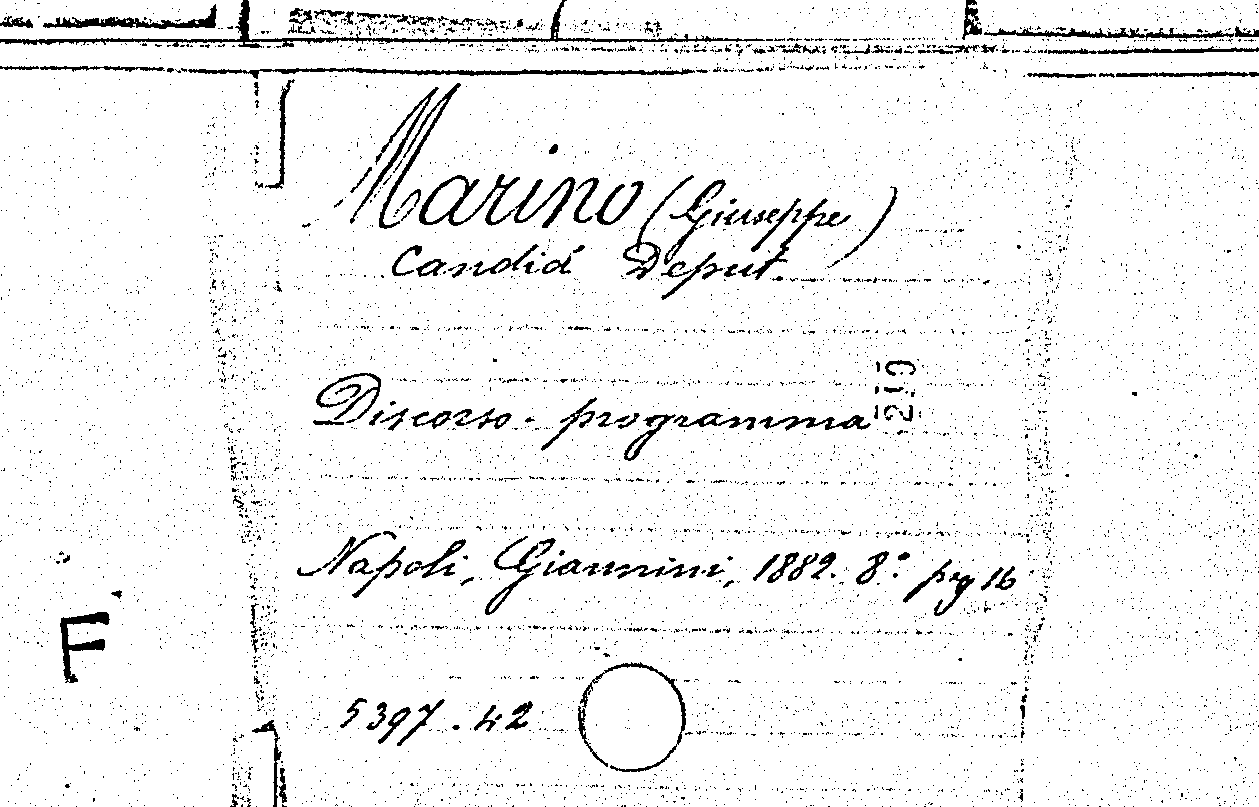 Marino (Giuseppe)
Candid Deput.
Discorso-programma
219
Napoli, Giannini, 1882. 8.° pag 16
F
5397.42